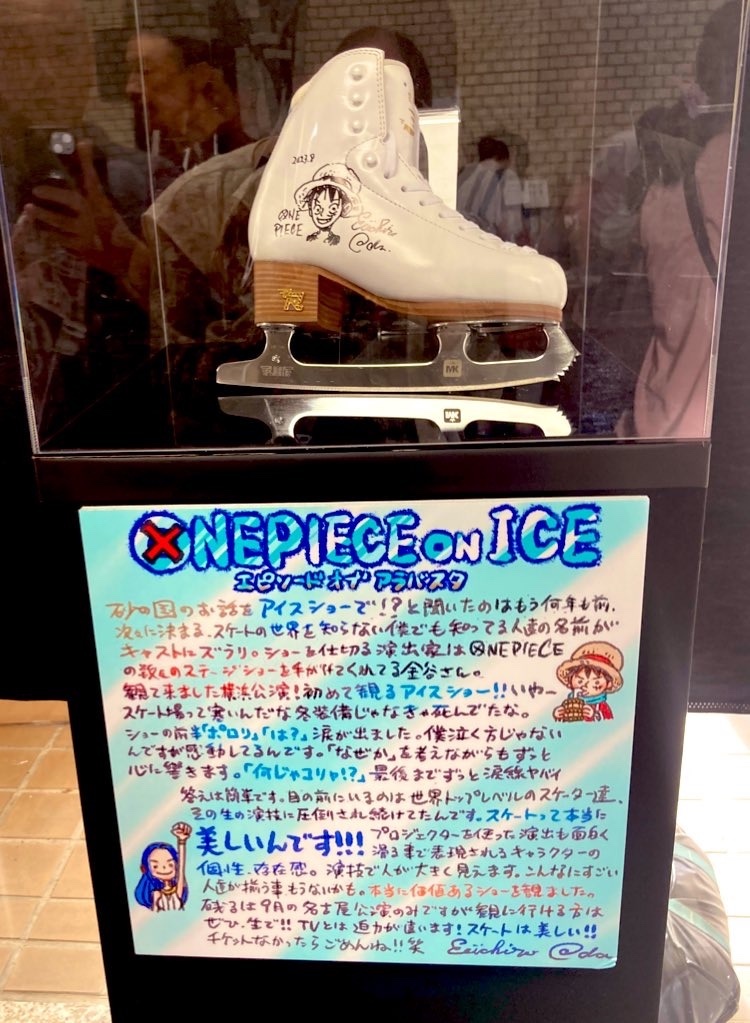 2023.8
ONE
PIECE
Eiichiro
Oda.
MK
ONE PIECE ON ICE
エピソードオブアラバスタ
砂の国のお話をアイスショーで!?と聞いたのはもう何年も前、
次々に決まる、スケートの世界を知らない僕でも知ってる人達の名前が
キャストにズラリ。ショーを仕切る演出家はONEPIECE
の数々のステージショーを手がけてくれてる金谷さん。
観て来ました横浜公演!初めて観るアイスショー!!いやー
スケート場って寒いんだな冬装備じゃなきゃ死んでたな。
ショーの前半「ポロリ」「は?」涙が出ました。僕泣く方じゃない
んですが感動してるんです。「なぜか」を考えながらもずっと
心に響きます。「何じゃコリャ!?」最後までずっと涙線ヤバイ
答えは簡単です。目の前にいるのは世界トップレベルのスケーター達、
その生の演技に圧倒され続けてたんです。スケートって本当に
美しいんです!!!プロジェクターを使った演出も面白く
滑る事で表現されるキャラクターの
個性、存在感。演技で人が大きく見えます。こんなにすごい
人達が揃う事もうないかも。本当に価値あるショーを観ました。
残るは9月の名古屋公演のみですが観に行ける方は
ぜひ、生で!!TVとは迫力が違います!スケートは美しい!!
チケットなかったらごめんね!!笑 Eiichiro Oda